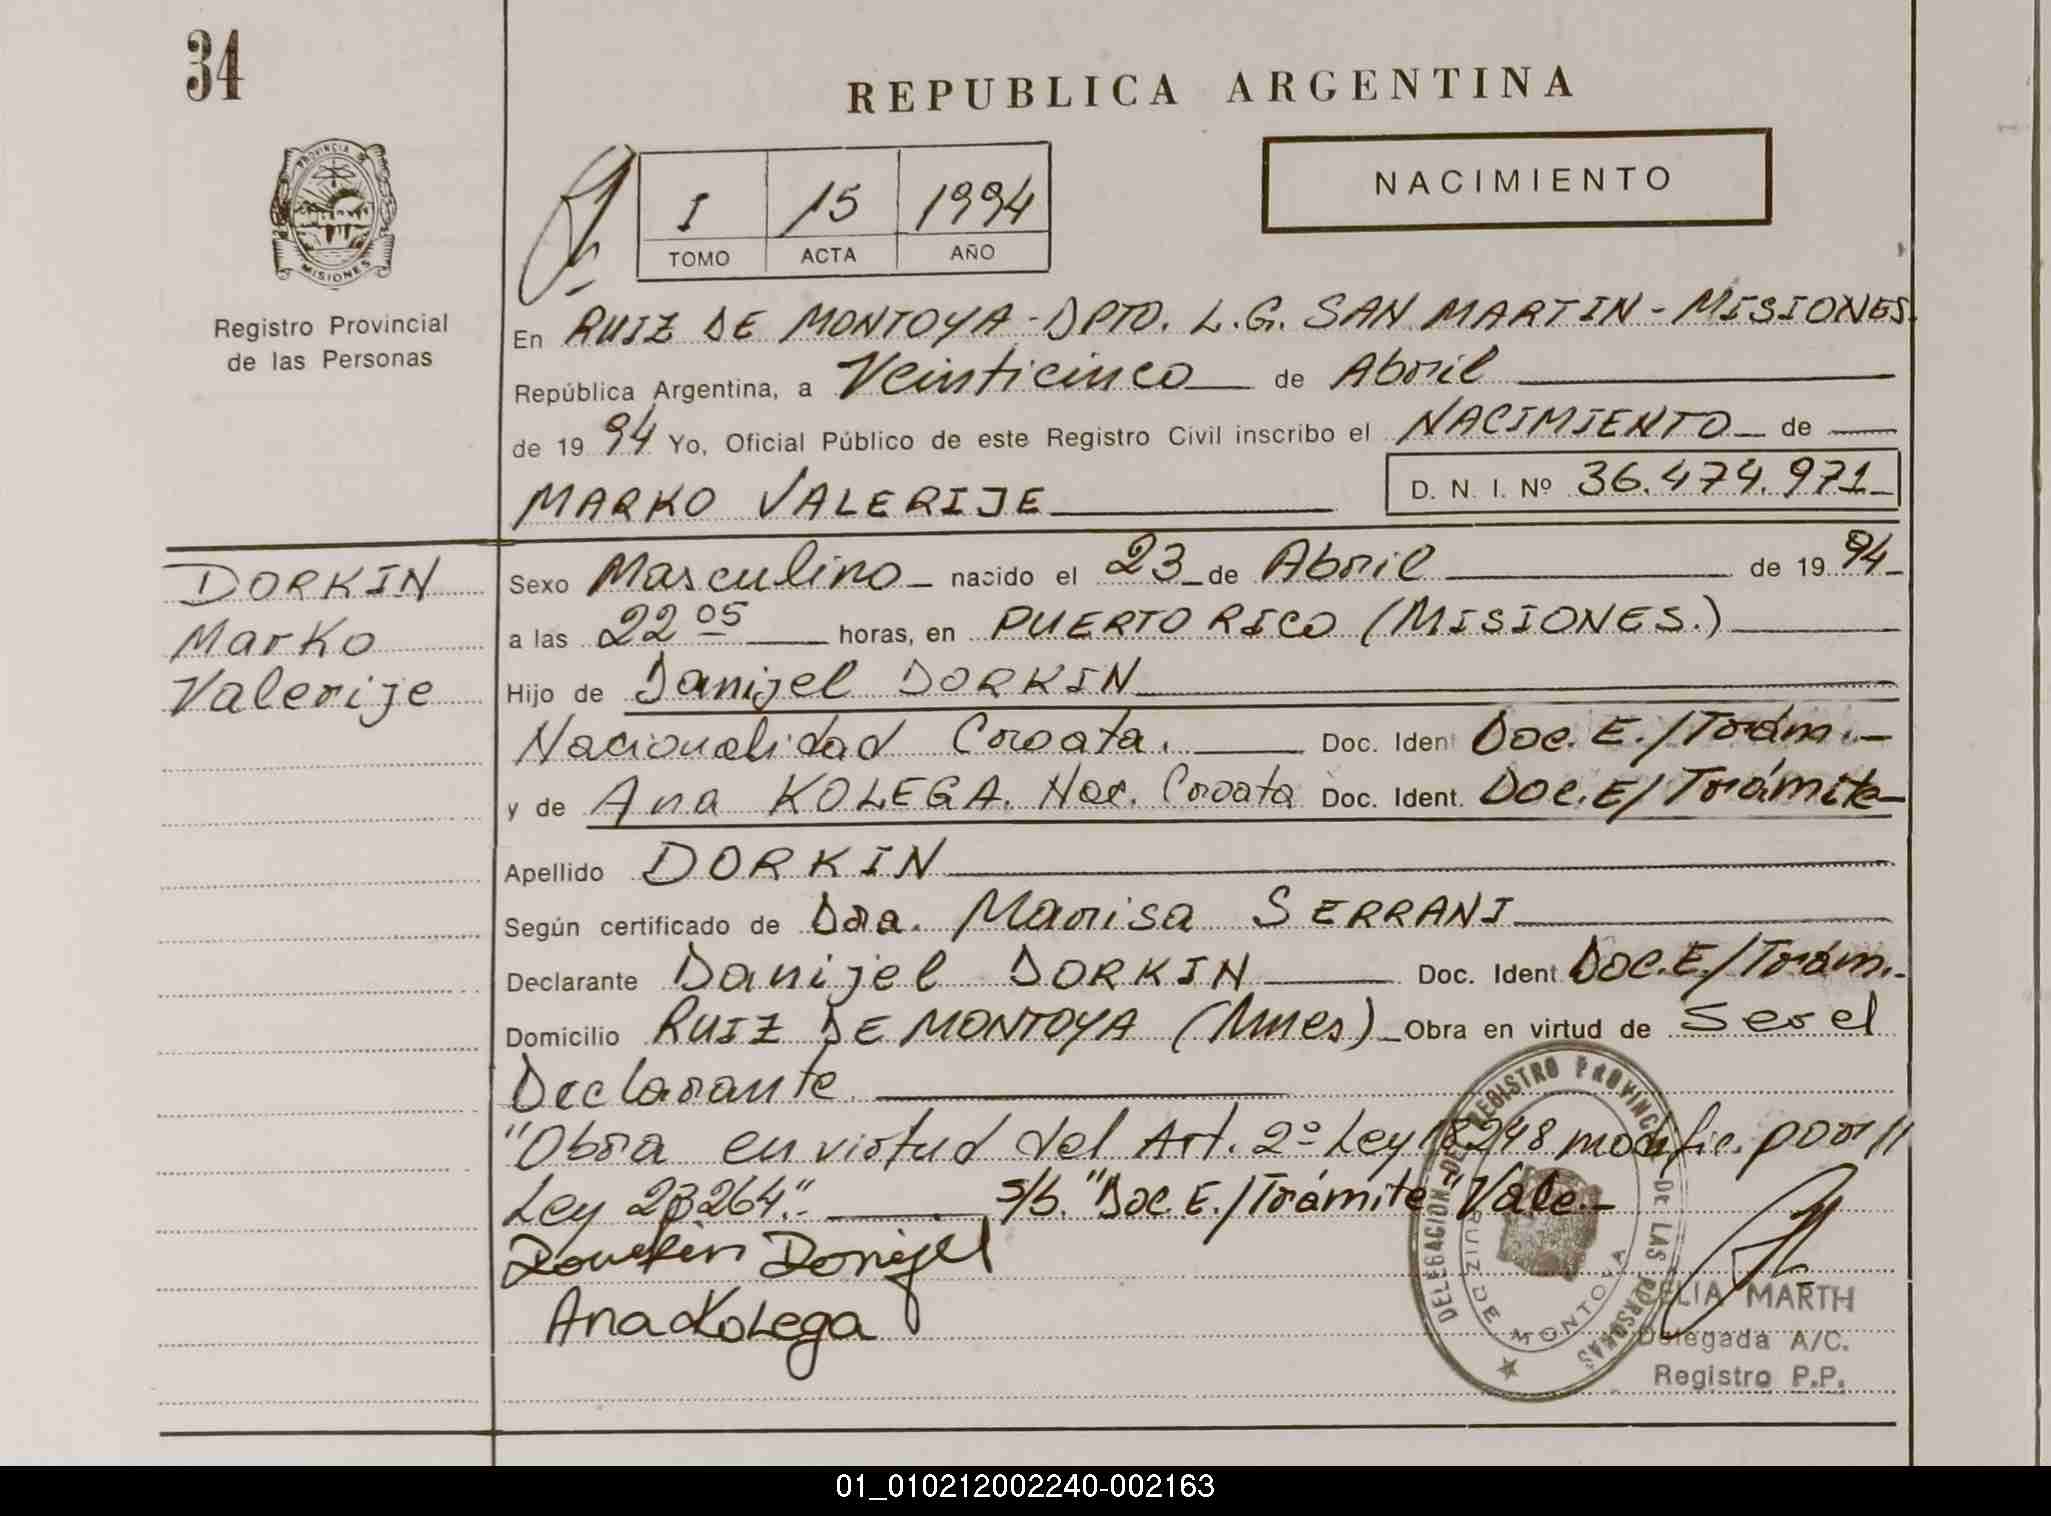 34
REPUBLICA ARGENTINA
PROVINCIA DE
MISIONES
Registro Provincial
de las Personas
I 15 1994
TOMO ACTA AÑO
NACIMIENTO
En RUIZ DE MONTOYA - DPTO. L.G. SAN MARTIN - MISIONES.
República Argentina, a Veinticinco de Abril
de 19 94 Yo, Oficial Público de este Registro Civil inscribo el NACIMIENTO de
MARKO VALERIJE D. N. I. Nº 36.474.971
DORKIN
Marko
Valerije
Sexo Masculino nacido el 23 de Abril de 19 94
a las 22 05 horas, en PUERTO RICO (MISIONES.)
Hijo de Danijel DORKIN
Nacionalidad Croata. Doc. Ident Doc. E./Trám.
y de Ana KOLEGA. Nac. Croata Doc. Ident. Doc. E/ Trámite
Apellido DORKIN
Según certificado de Dra. Marisa SERRANI
Declarante Danijel DORKIN Doc. Ident Doc. E./Trám.
Domicilio RUIZ DE MONTOYA (Mnes) Obra en virtud de Ser el
Declarante
"Obra en virtud del Art. 2º Ley 18248 modific. por //
Ley 23264".- s/b. "Doc. E./Trámite" Vale.-
Dorkin Danijel
Ana Kolega
DELEGACION DEL REGISTRO PROVINCIAL DE LAS PERSONAS
RUIZ DE MONTOYA
CELIA MARTH
Delegada A/C.
Registro P.P.
01_010212002240-002163